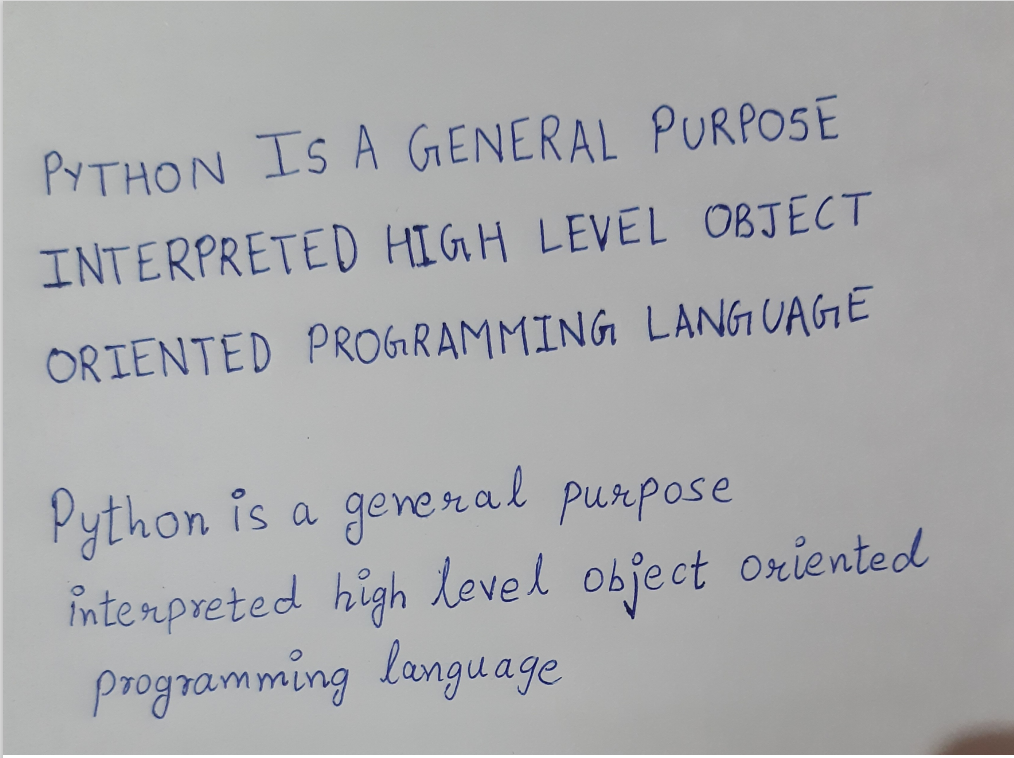 PYTHON IS A GENERAL PURPOSE
INTERPRETED HIGH LEVEL OBJECT
ORIENTED PROGRAMMING LANGUAGE
Python is a general purpose
interpreted high level object oriented
programming language